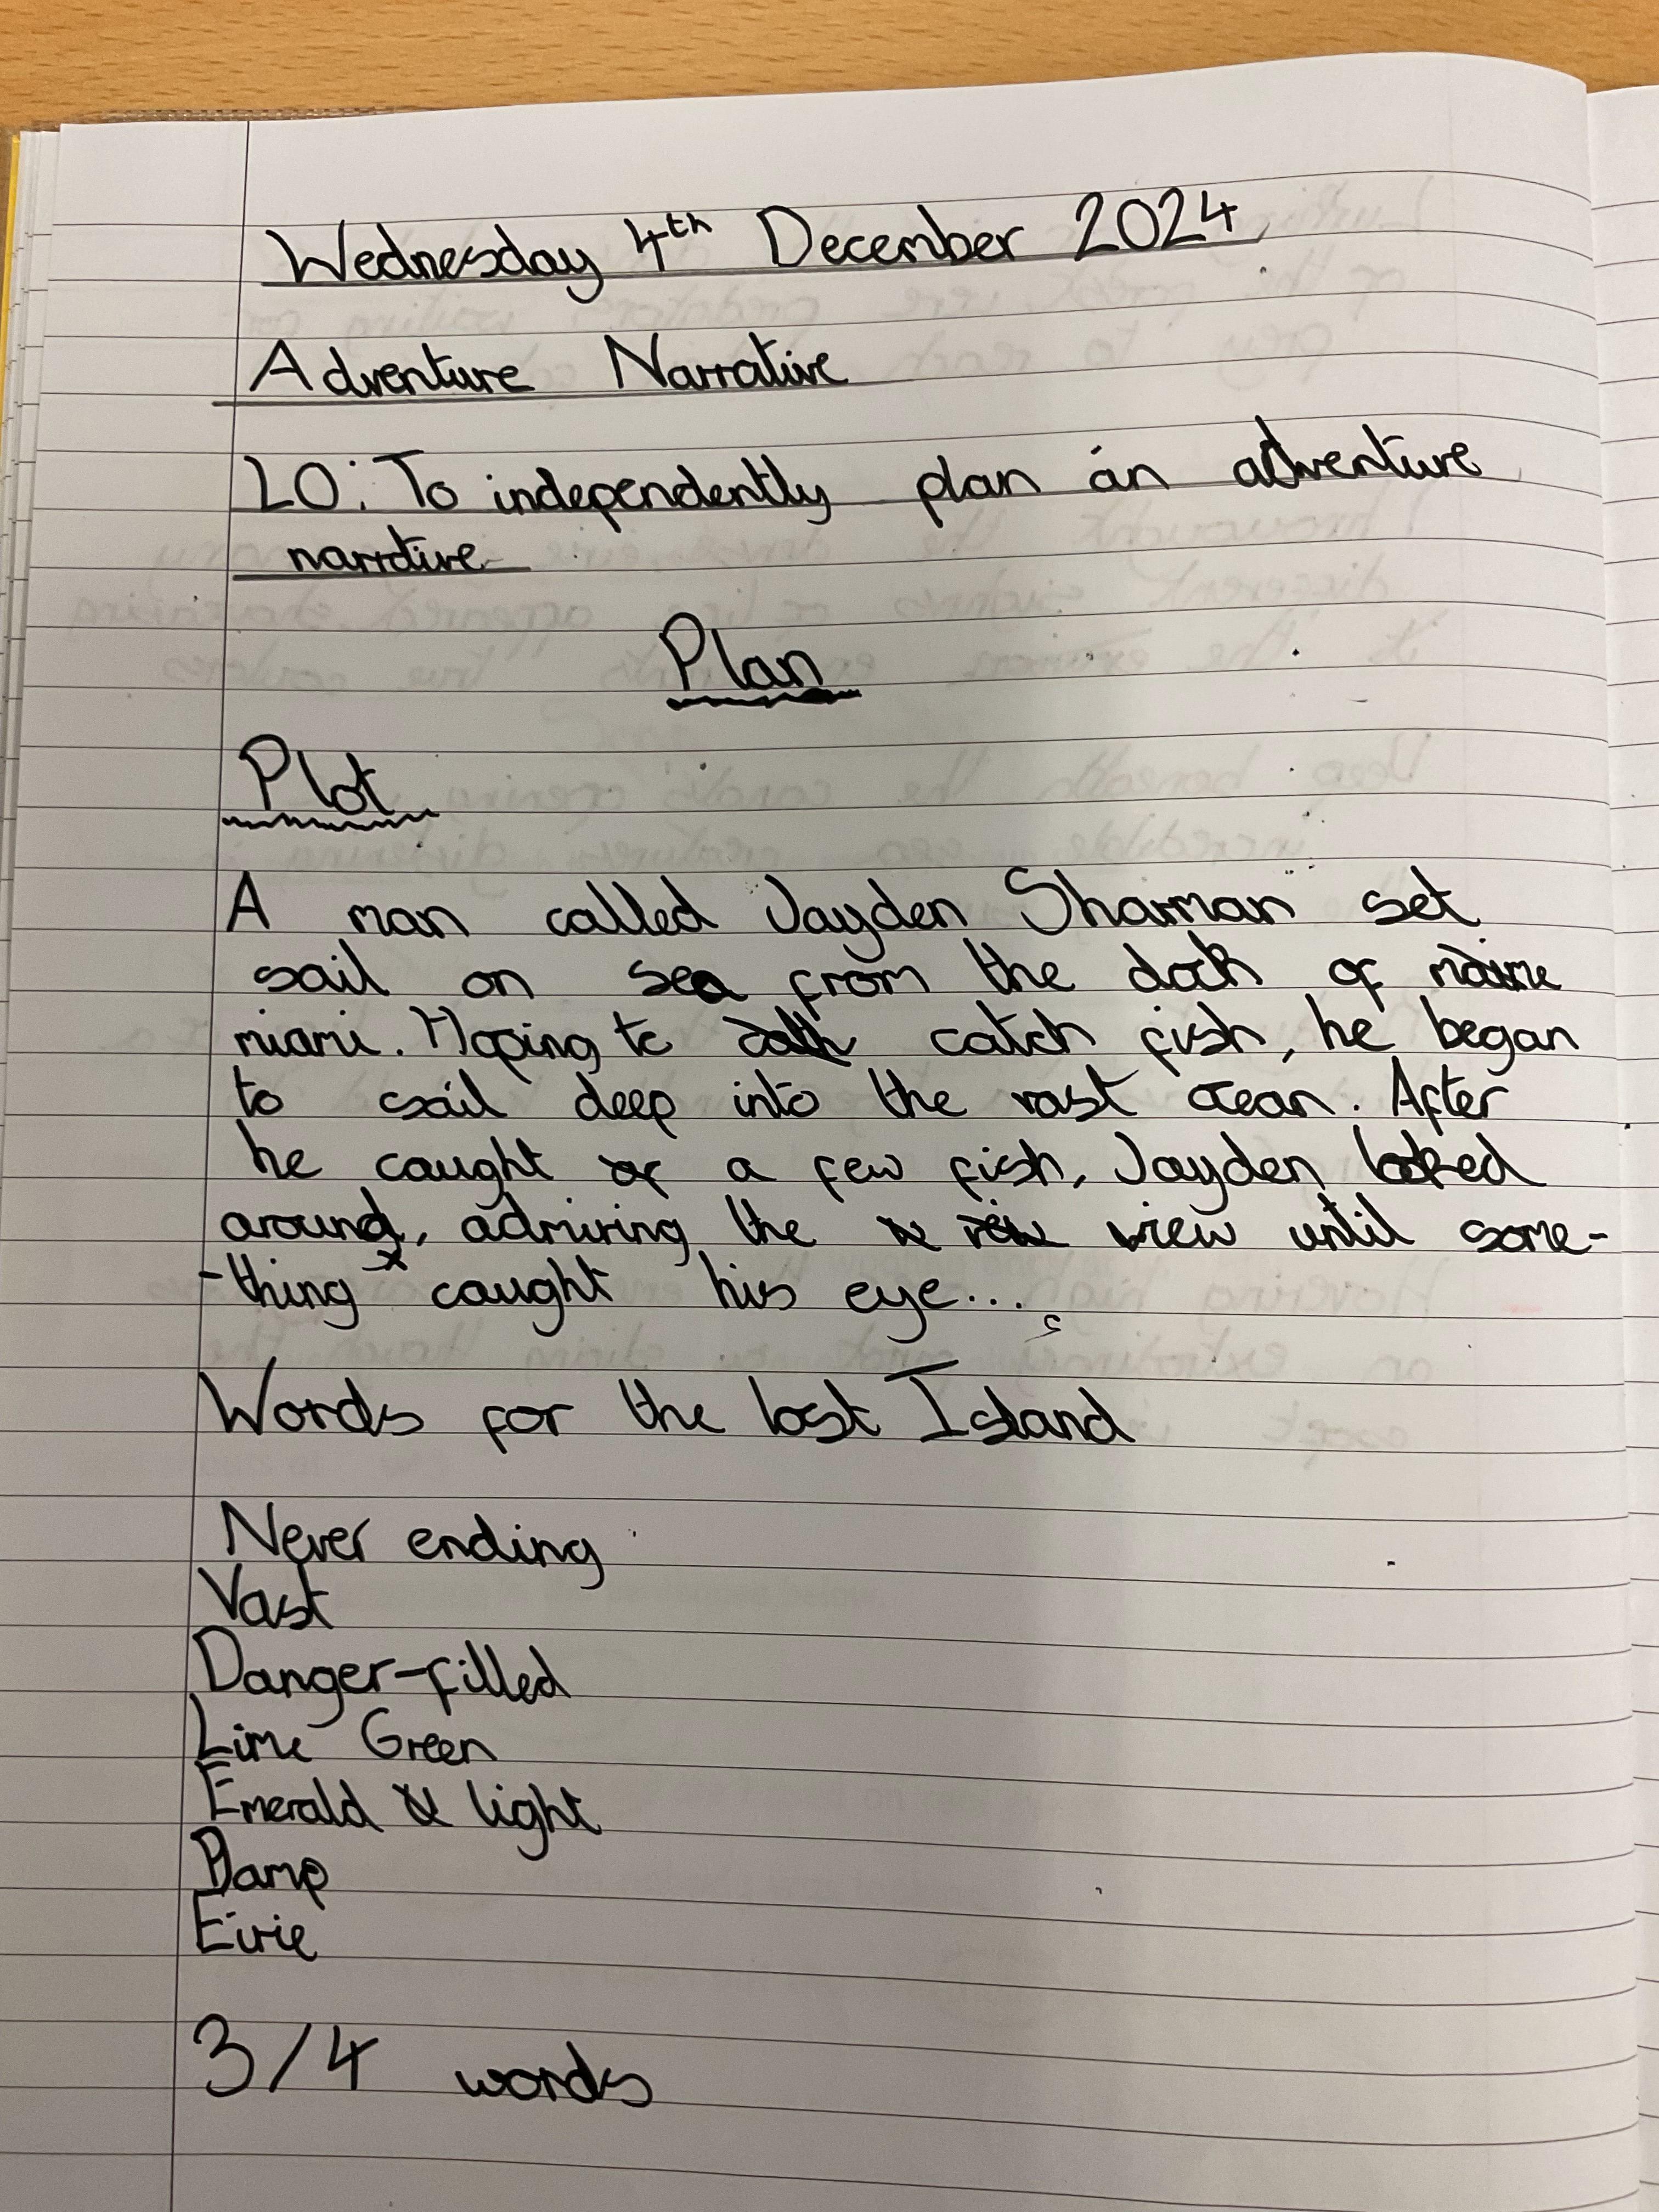 Wednesday 4th December 2024
Adventure Narrative
LO: To independently plan an adventure
narrative
Plan
Plot
A man called Jayden Sharman set
sail on sea from the dock of
miami. Hoping to catch fish, he began
to sail deep into the vast ocean. After
he caught a few fish, Jayden looked
around, admiring the view until some-
-thing caught his eye...
Words for the lost Island
Never ending
Vast
Danger-filled
Lime Green
Emerald light
Damp
Eirie
3/4 words